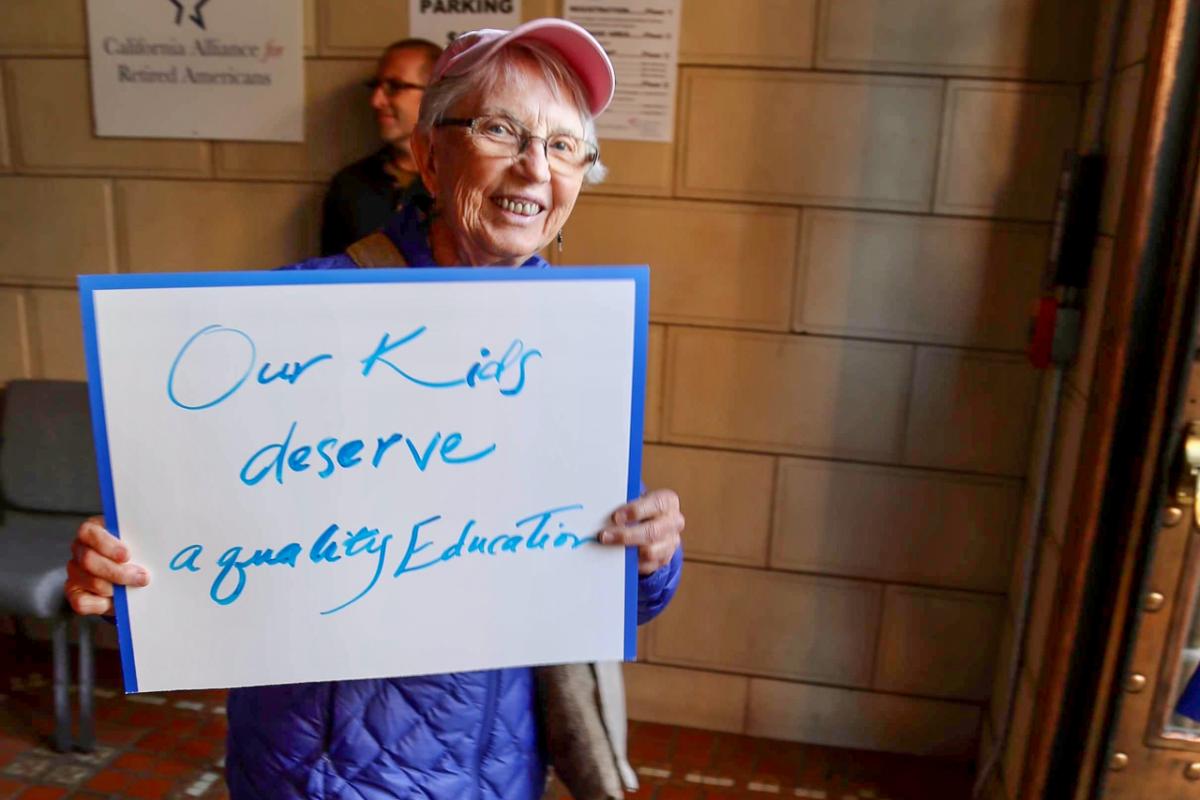 California Alliance for
Retired Americans
PARKING
Our Kids
deserve
a quality Education